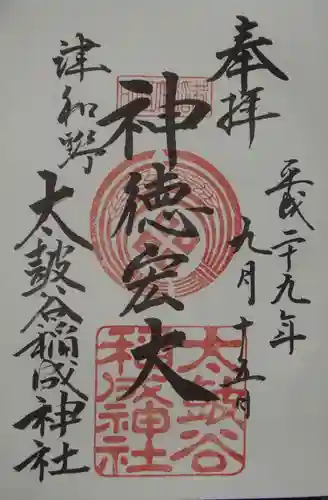 奉拝
平成二十九年
九月十五日
神徳宏大
津和野
太鼓谷稲成神社
太鼓谷
稲成神社